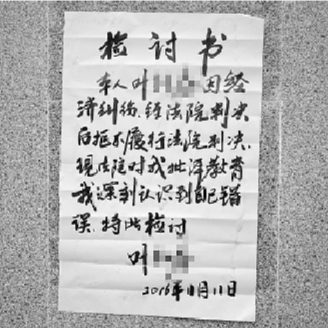 检讨书
本人叶 因经
济纠纷,经法院判决
后拒不履行法院判决.
现法院对我批评教育
我深刻认识到自己错
误.特此检讨
叶
2016年11月11日